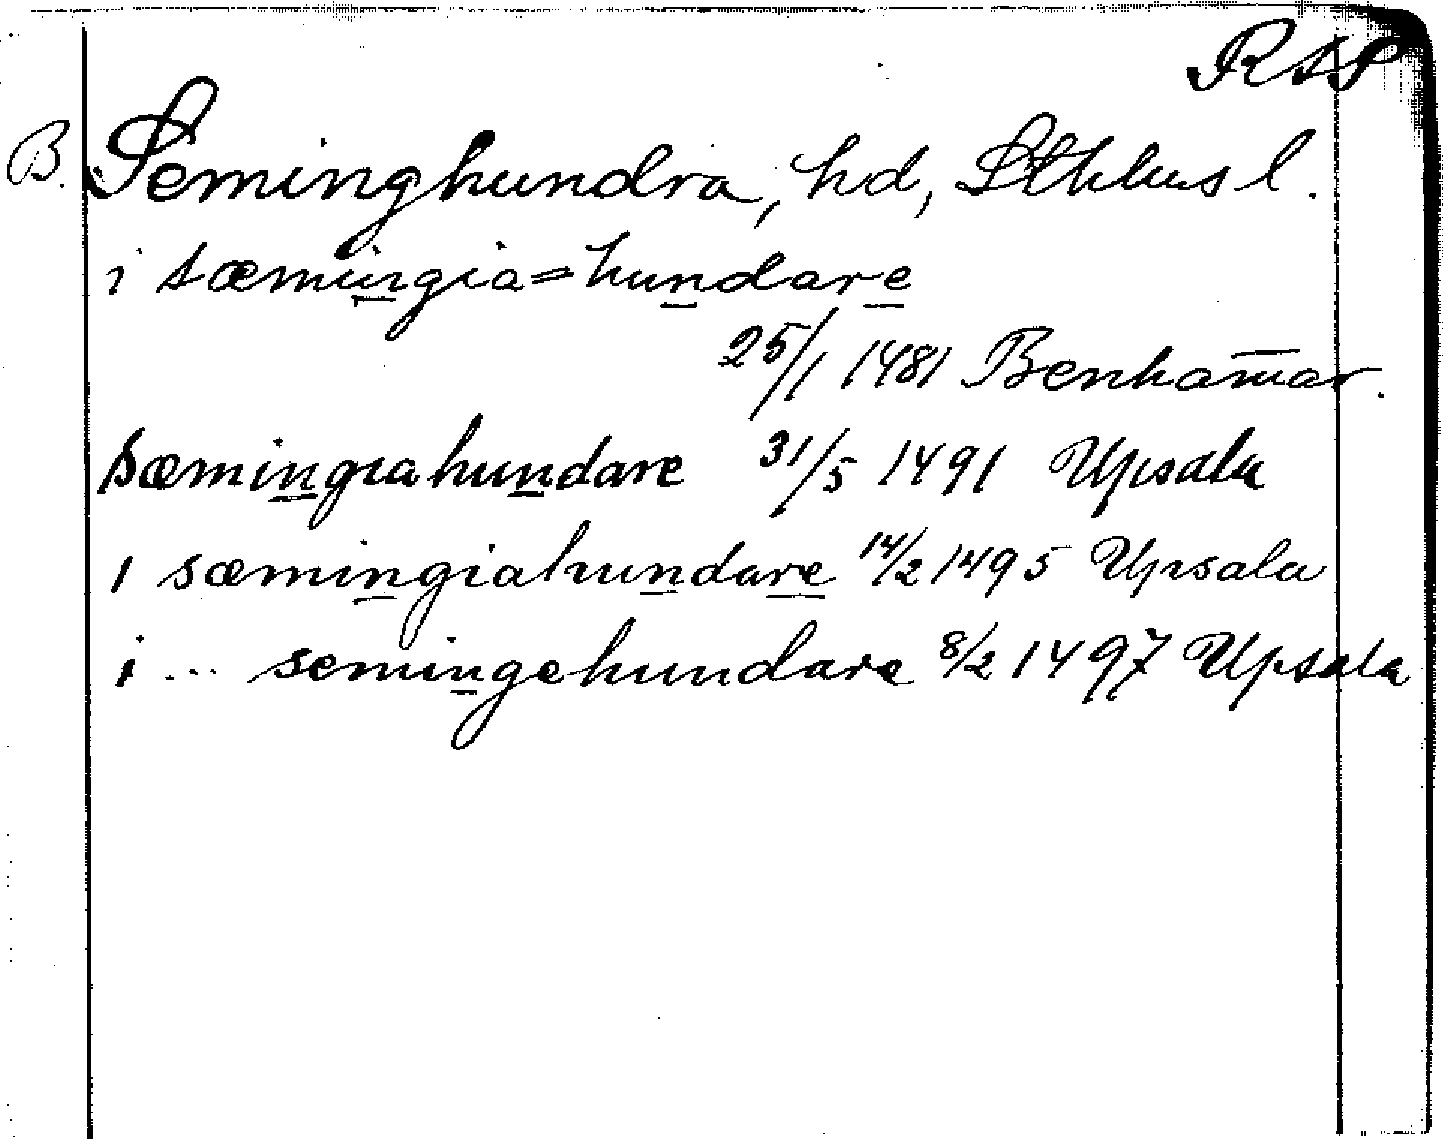 RAP
B. Seminghundra, hd, Sthlms l.
i sæmingia=hundare
25/1 1481 Benham̅ar.
sæmingiahundare 31/5 1491 Upsala
i sæmingiahundare 14/2 1495 Upsala
i ... semingehundare 8/2 1497 Upsala